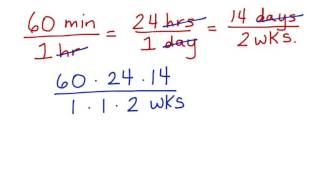 60 min / 1 hr = 24 hrs / 1 day = 14 days / 2 wks.
60 · 24 · 14 / 1 · 1 · 2 wks